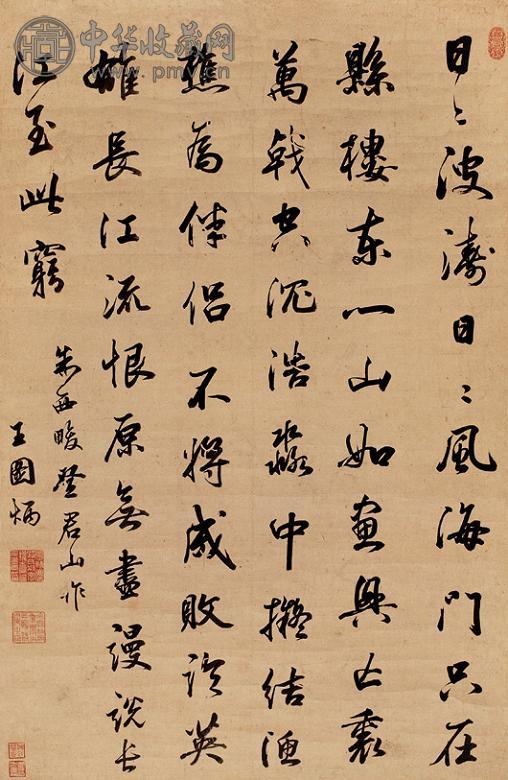 中华收藏网
www.pmv.cn
日〻波濤日〻風海門只在
縣樓東一山如畫興亡裏
萬戟空沉浩淼中擬結漁
樵為伴侶不將成敗論英
雄長江流恨原無盡漫說長
江至此窮
朱西畯登君山作
王圖炳